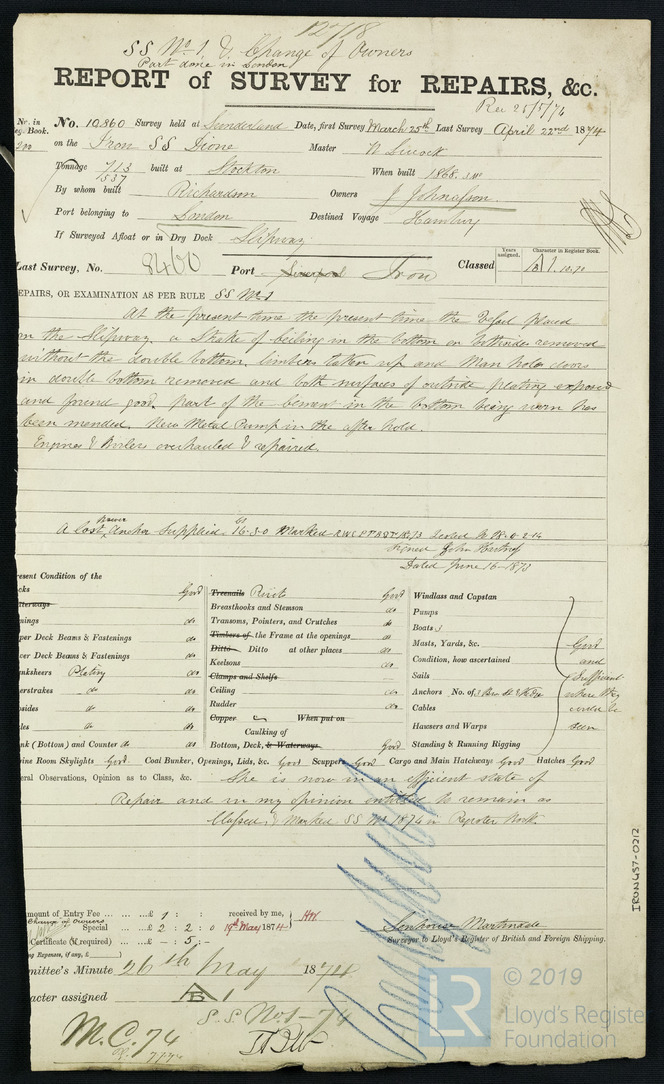 12718
SS No 1, & Change of Owners
Part done in London
REPORT of SURVEY for REPAIRS, &c.
Rec 25/5/74
No. in Reg. Book.
No. 10860 Survey held at Sunderland Date, first Survey March 25th Last Survey April 22nd 1874
on the Iron SS Dione Master
Tonnage 713 built at Stockton When built 1868
1537
By whom built Richardson Owners J Johnasson
Port belonging to London Destined Voyage Hamburg
If Surveyed Afloat or in Dry Dock Slipway
Last Survey, No. 8460 Port Liverpool Iron Classed A 1.
Years assigned.
Character in Register Book.
REPAIRS, OR EXAMINATION AS PER RULE SS No 1
At the present time the present time the Vessel placed
on the Slipway, a Strake of Ceiling in the bottom removed
without the double bottom, limbers taken up and Man hole doors
in double bottom removed and both surfaces of outside plating exposed
and found good, part of the Cement in the bottom being worn has
been mended. New Metal Pump in the after hold.
Engines & Boilers overhauled & repaired.
A lost Bower Anchor Supplied 16-3-0 Marked Tested to
Signed John
Dated June 16-1873
Present Condition of the
Decks Good
Waterways
do
Upper Deck Beams & Fastenings do
Lower Deck Beams & Fastenings do
Planksheers Plating do
do do
Topsides do do
do do
(Bottom) and Counter do do
Treenails Rivets Good
Breasthooks and Stemson do
Transoms, Pointers, and Crutches do
Timbers of the Frame at the openings do
Ditto Ditto at other places do
Keelsons do
Clamps and Shelfs
Ceiling do
Rudder do
Copper When put on
Caulking of
Bottom, Deck, & Waterways Good
Windlass and Capstan
Pumps
Boats 3
Masts, Yards, &c.
Condition, how ascertained
Sails
Anchors No. of 3
Cables
Hawsers and Warps
Standing & Running Rigging
Good
and
Sufficient
where they
could be
seen
Engine Room Skylights Good Coal Bunker, Openings, Lids, &c. Good Scuppers Good Cargo and Main Hatchways Good Hatches Good
General Observations, Opinion as to Class, &c. She is now in an efficient state of
Repair and in my opinion entitled to remain as
Classed, & Marked SS No 1 1874 in Register Book.
Amount of Entry Fee £ 1 : : received by me,
Change of owners
Special £ 2 : 2 : 0 19th May 1874
Certificate (if required) £ - : 5 : -
Senhouse Martindale
Surveyor to Lloyd's Register of British and Foreign Shipping.
Committee's Minute 26th May 1874
Character assigned A 1
S.S No 1-74
M.C. 74
IRON457-0212
LR
© 2019
Lloyd's Register
Foundation